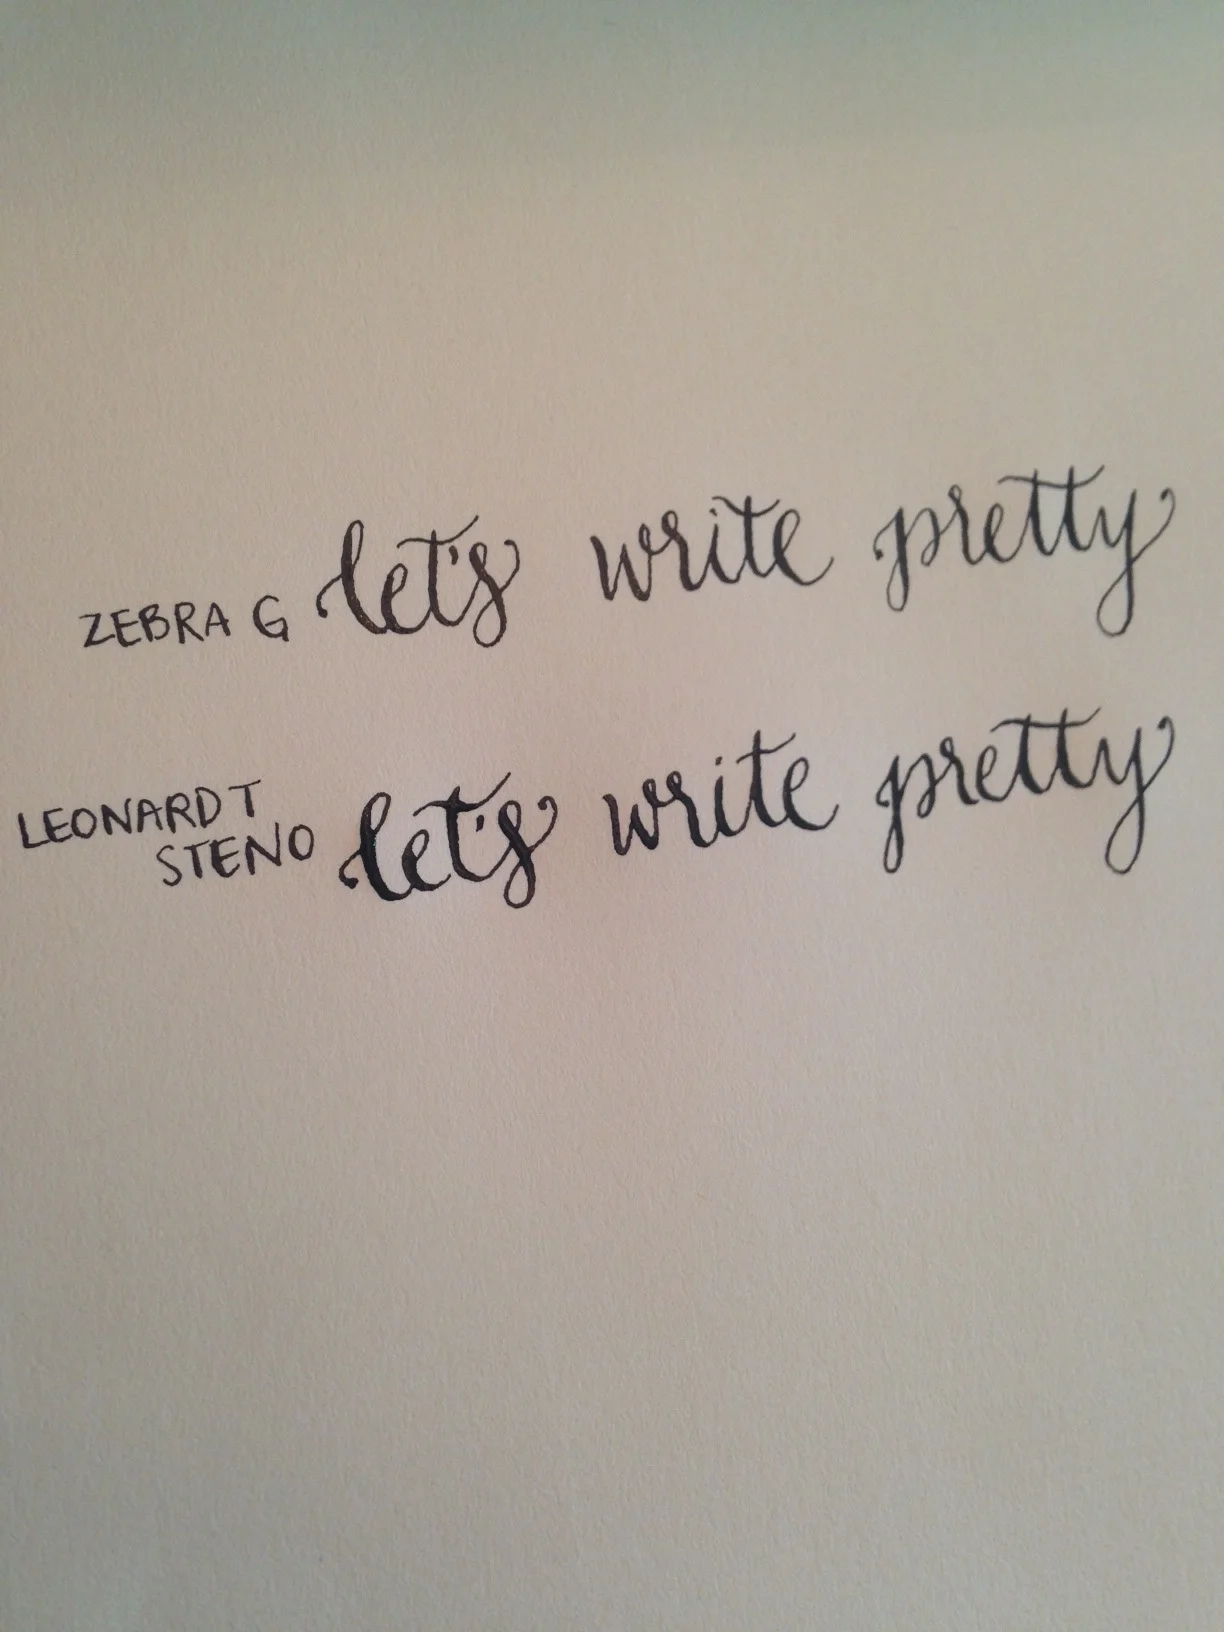 ZEBRA G let's write pretty
LEONARDT
STENO let's write pretty